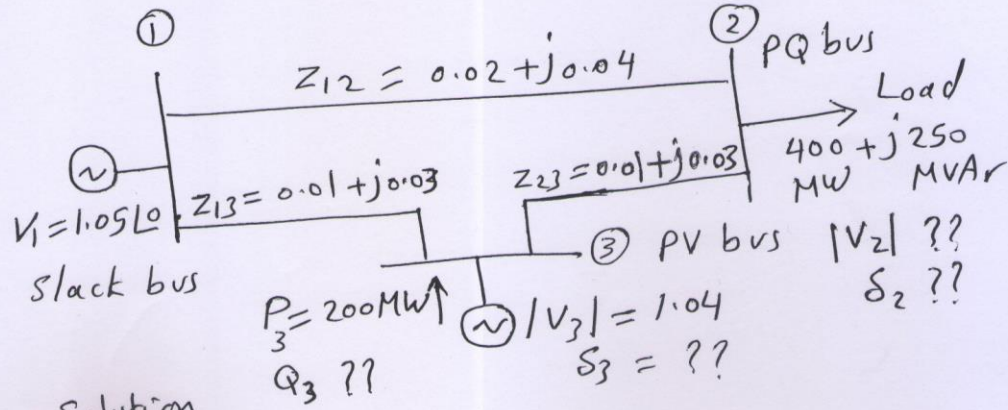 ① ②
PQ bus
Z12 = 0.02+j0.04
Load
400 + j 250
MW MVAr
Z13 = 0.01+j0.03
Z23 = 0.01+j0.03
V1 = 1.05∠0
Slack bus
③ PV bus
|V2| ??
δ2 ??
P3 = 200MW↑
Q3 ??
~ |V3| = 1.04
δ3 = ??
Solution